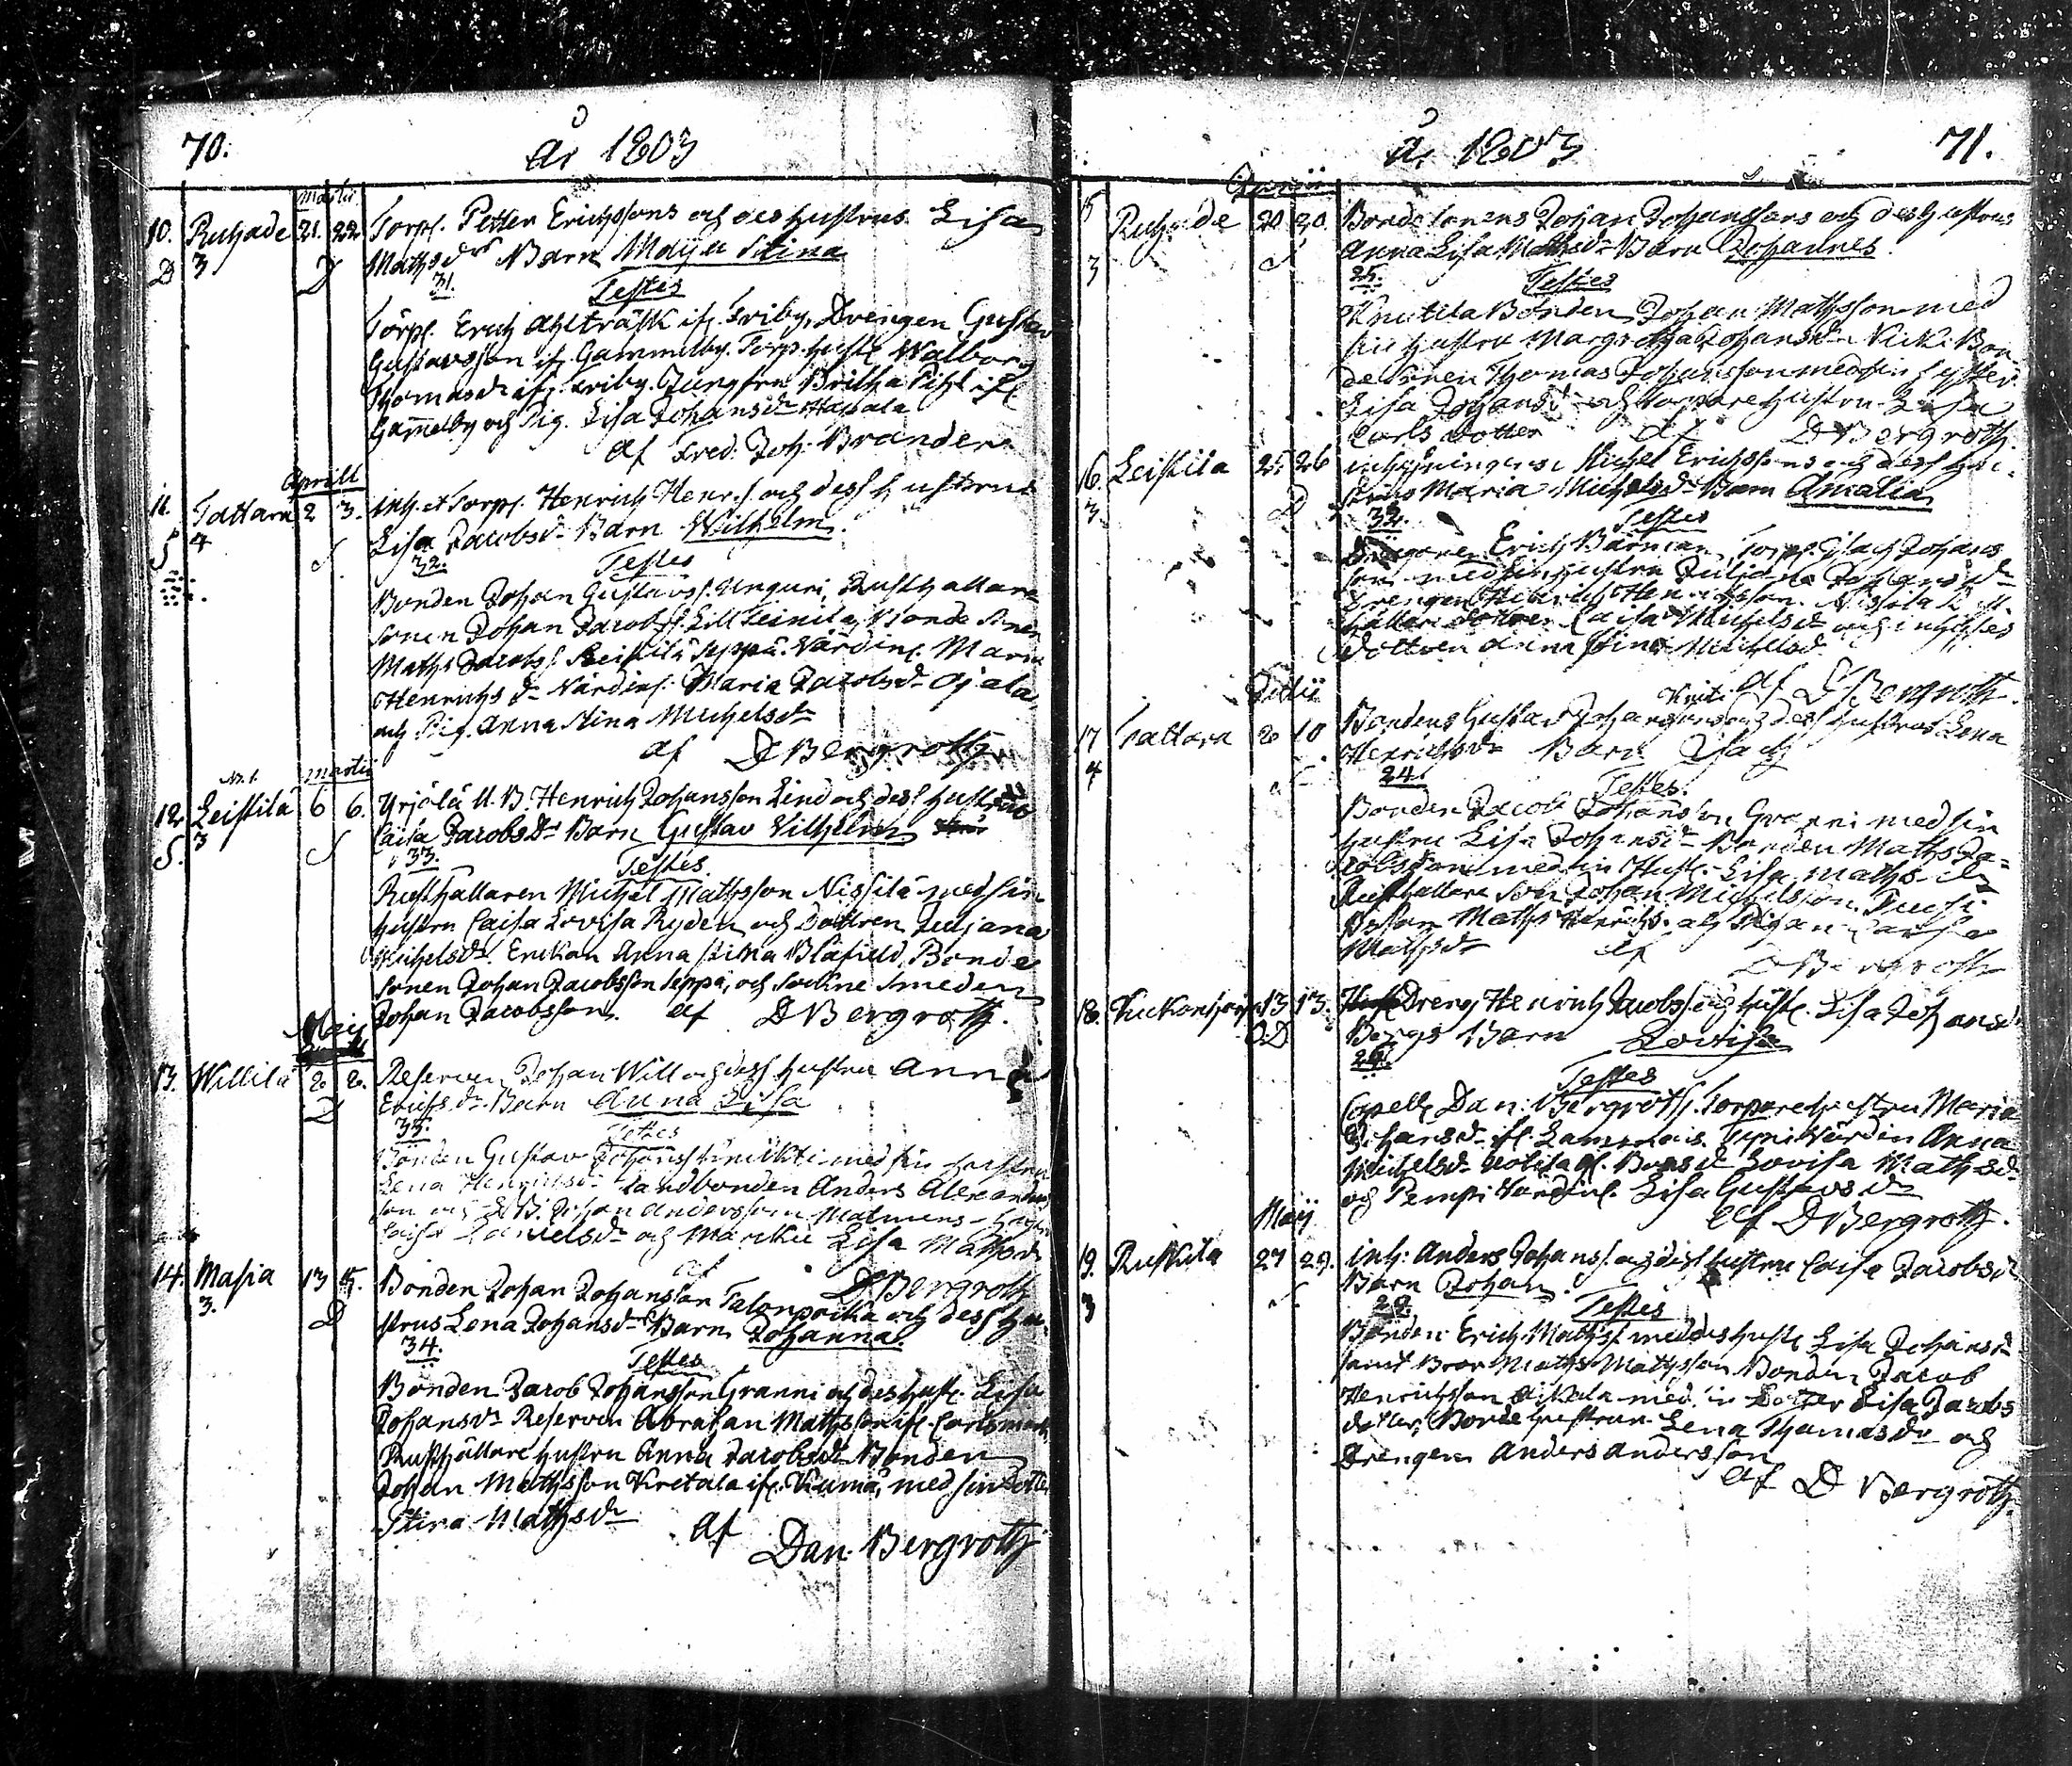 70.
År 1803
Martii
10. Ruhade 21. 22. Torp. Petter Erichssons och des hustrus Lisa
D 3 D Maths dr Barn Maija Stina
31. Testes
Torp. Erich Ahlträsk if. Friby, Drengen Gustav
Gustavsson if. Gammelby. Torp. hust. Walborg
Thomasdr if. Friby. Jungfru Britha Pihl if.
Gammelby och Pig. Lisa Johansdr Hassala
af Fred. Joh. Brander
Aprill
11. Tattara 2 3. inh. et Torp. Henrich Henr.s. och dess hustrus
S 4 S. Lisa Jacobsdr Barn Wilhelm.
32. Testes
Bonden Johan Gustavss. Unguri, Rusthållare
sonen Johan Jacobss. Lill Leinila, Bonde Sonen
Maths Jacobs. Leistilä Seppä. Värdin. Maria
Henrichsdr Värdin. Maria Jacobsdr Ojala
och Pig. Anna Stina Michelsdr
af D Bergroth
Martii
12. Leistilä 6 6. Yrjälä U. B. Henrich Johansson Lind och dess hustrus
S. 3 S Caisa Jacobsdr Barn Gustav Vilhelm
33. Testes
Rusthållaren Michel Mathsson Nissilä med sin
hustru Caisa Lovisa Ryden och Dottren Juljana
Michelsdr. Enckan Anna Stina Blåfield, Bonde
sonen Johan Jacobsson Seppä, och Sockne Smeden
Johan Jacobsson. af D Bergroth.
Maij
13. Willilä 2 2. Reserven Johan Will och dess hustru Anna
D Erichs.dr Barn Anna Lisa
33. Testes
Bonden Gustav Johanss med sin hustru
Lena Henrichsdr Landbonden Anders Alexanders
son och Johan Andersson
Caisa Danielsdr och Lisa Mathsdr
af D Bergroth
14. Masia 13 15. Bonden Johan Johansson Talonpoika och dess hu-
3. D strus Lena Johansdr Barn Johanna.
34. Testes
Bonden Jacob Johansson Granni och des hust. Lisa
Johansdr Reserven Abraham Mathsson if. Carlsmark
Rusthållare hustru Anna Jacobsdr Bonden
Johan Mathsson Kretala if. Kumå, med sin Dotter
Stina Mathsdr af
Dan. Bergroth
År 1803
71.
15 Ruhade 20 20. Bonde sonens Johan Johanssons och des hustrus
3 S Anna Lisa Mathsdr Barn Johannes.
25. Testes
Knutila Bonden Johan Mathsson med
sin hustru Margretha Johansdr Bon-
de sonen Thomas Johansson med sin syster
Lisa Johansdr och torpare hustru Lisa
Carls dotter af D Bergroth
16. Leistila 25. 26 inhysningens Michel Erichssons och dess hu-
3. D strus Maria Michelsdr Barn Amalia
32. Testes
Erich Bärman Torp. Isach Johans
son med sin hustru Juljana Johansdr
Drengen Henrich Henrichsson. Nissila Rust-
hållare dottren Caisa Michelsdr och inhyses
dottren Anna Stina Michelsdr
af D Bergroth.
17 Tattara 2 10 Bondens Gustav Johanssons och dess hustrus Lena
4 Henrichsdr Barn Isach
24. Testes.
Bonden Jacob Johansson Granni med sin
hustru Lisa Johansdr Bonden Maths Ja-
cobsson med sin Hust. Lisa Mathsdr
Rusthållare son Johan Michelsson
Maths Henrichs. och Pigan
Mathsdr af D Bergroth
18. 13 13. Dreng. Henrich Jacobs. och hust. Lisa Johansdr
O.D Bergs Barn Lovisa
24. Testes
Capell. Dan: Bergroth. Torpare hustru Maria
Johansdr if. Lammais. Tyni Värdin Anna
Michelsdr Lovisa Mathsdr
och Pempi Värdin. Lisa Gustavsdr
af D Bergroth.
Maij
19. Ruskila 27 29. inh: Anders Johanss. och dess hustru Caisa Jacobsdr
3 S Barn Johan.
29. Testes
Bonden Erich Mathss. med des hust. Lisa Johansdr
samt Bror Maths Mathsson Bonden Jacob
Henrichsson med sin Dotter Lisa Jacobs
dotter, Bonde hustrun Lena Thomasdr och
Drengen Anders Andersson
af D Bergroth.